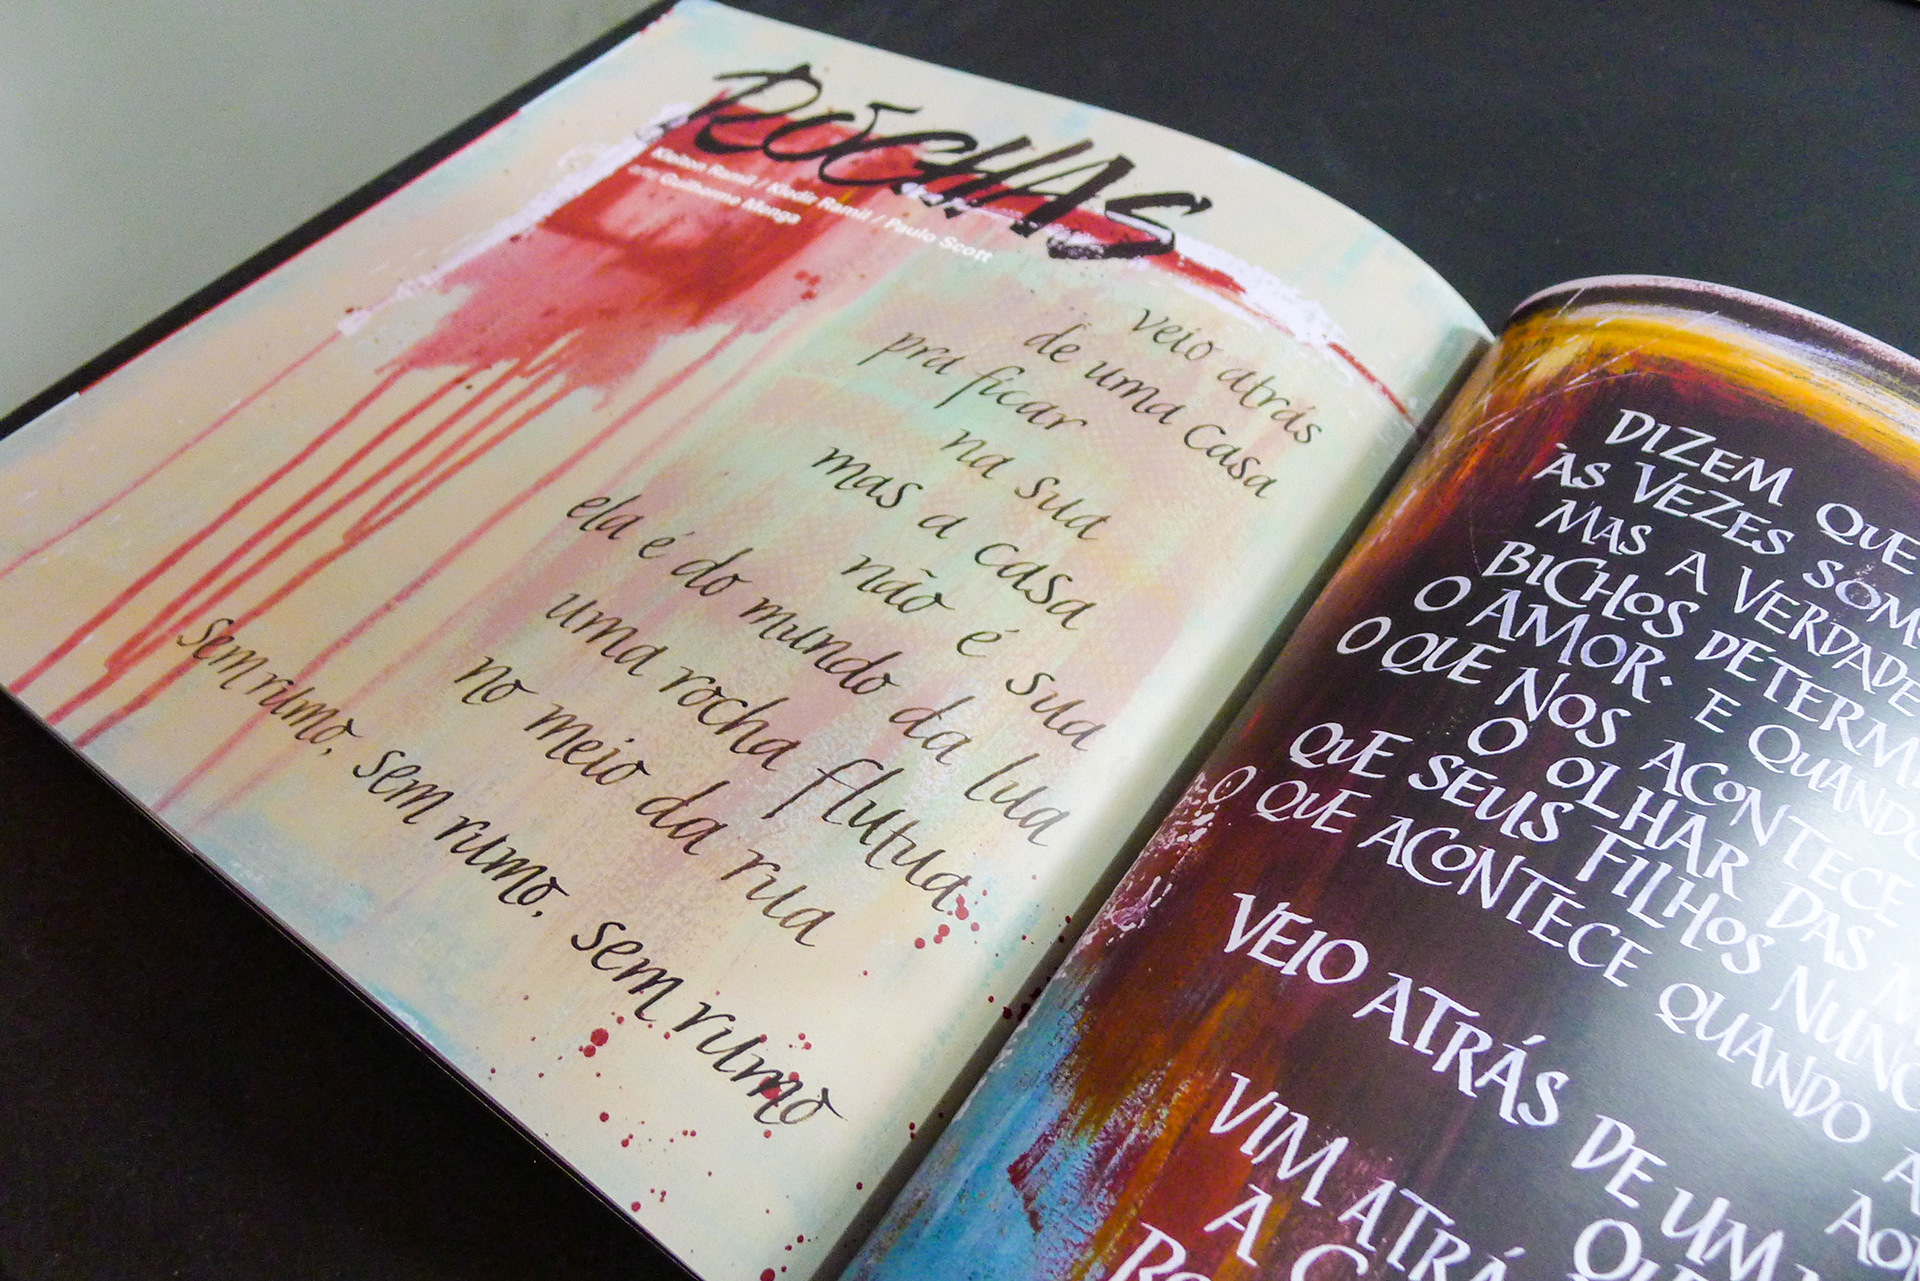 ROCHAS
Kleiton Ramil / Kledir Ramil / Paulo Scott
arte Guilherme Menga
veio atrás
de uma casa
pra ficar
na sua
mas a casa
não é sua
ela é do mundo da lua
uma rocha flutua
no meio da rua
sem rumo, sem rumo, sem rumo
DIZEM QUE
ÀS VEZES
MAS A VERDADE
BICHOS
O AMOR. E QUANDO
O QUE NOS ACONTECE
O OLHAR DAS
QUE SEUS FILHOS
O QUE ACONTECE QUANDO
VEIO ATRÁS DE
VIM
A